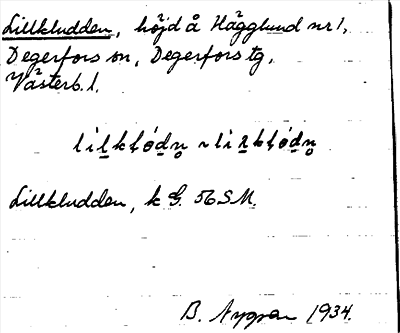 Lillkludden, höjd å Hägglund nr 1,
Degerfors sn, Degerfors tg,
Västerb. l.
Lillkludden, k G. 56 S.M.
B. Nygren 1934.